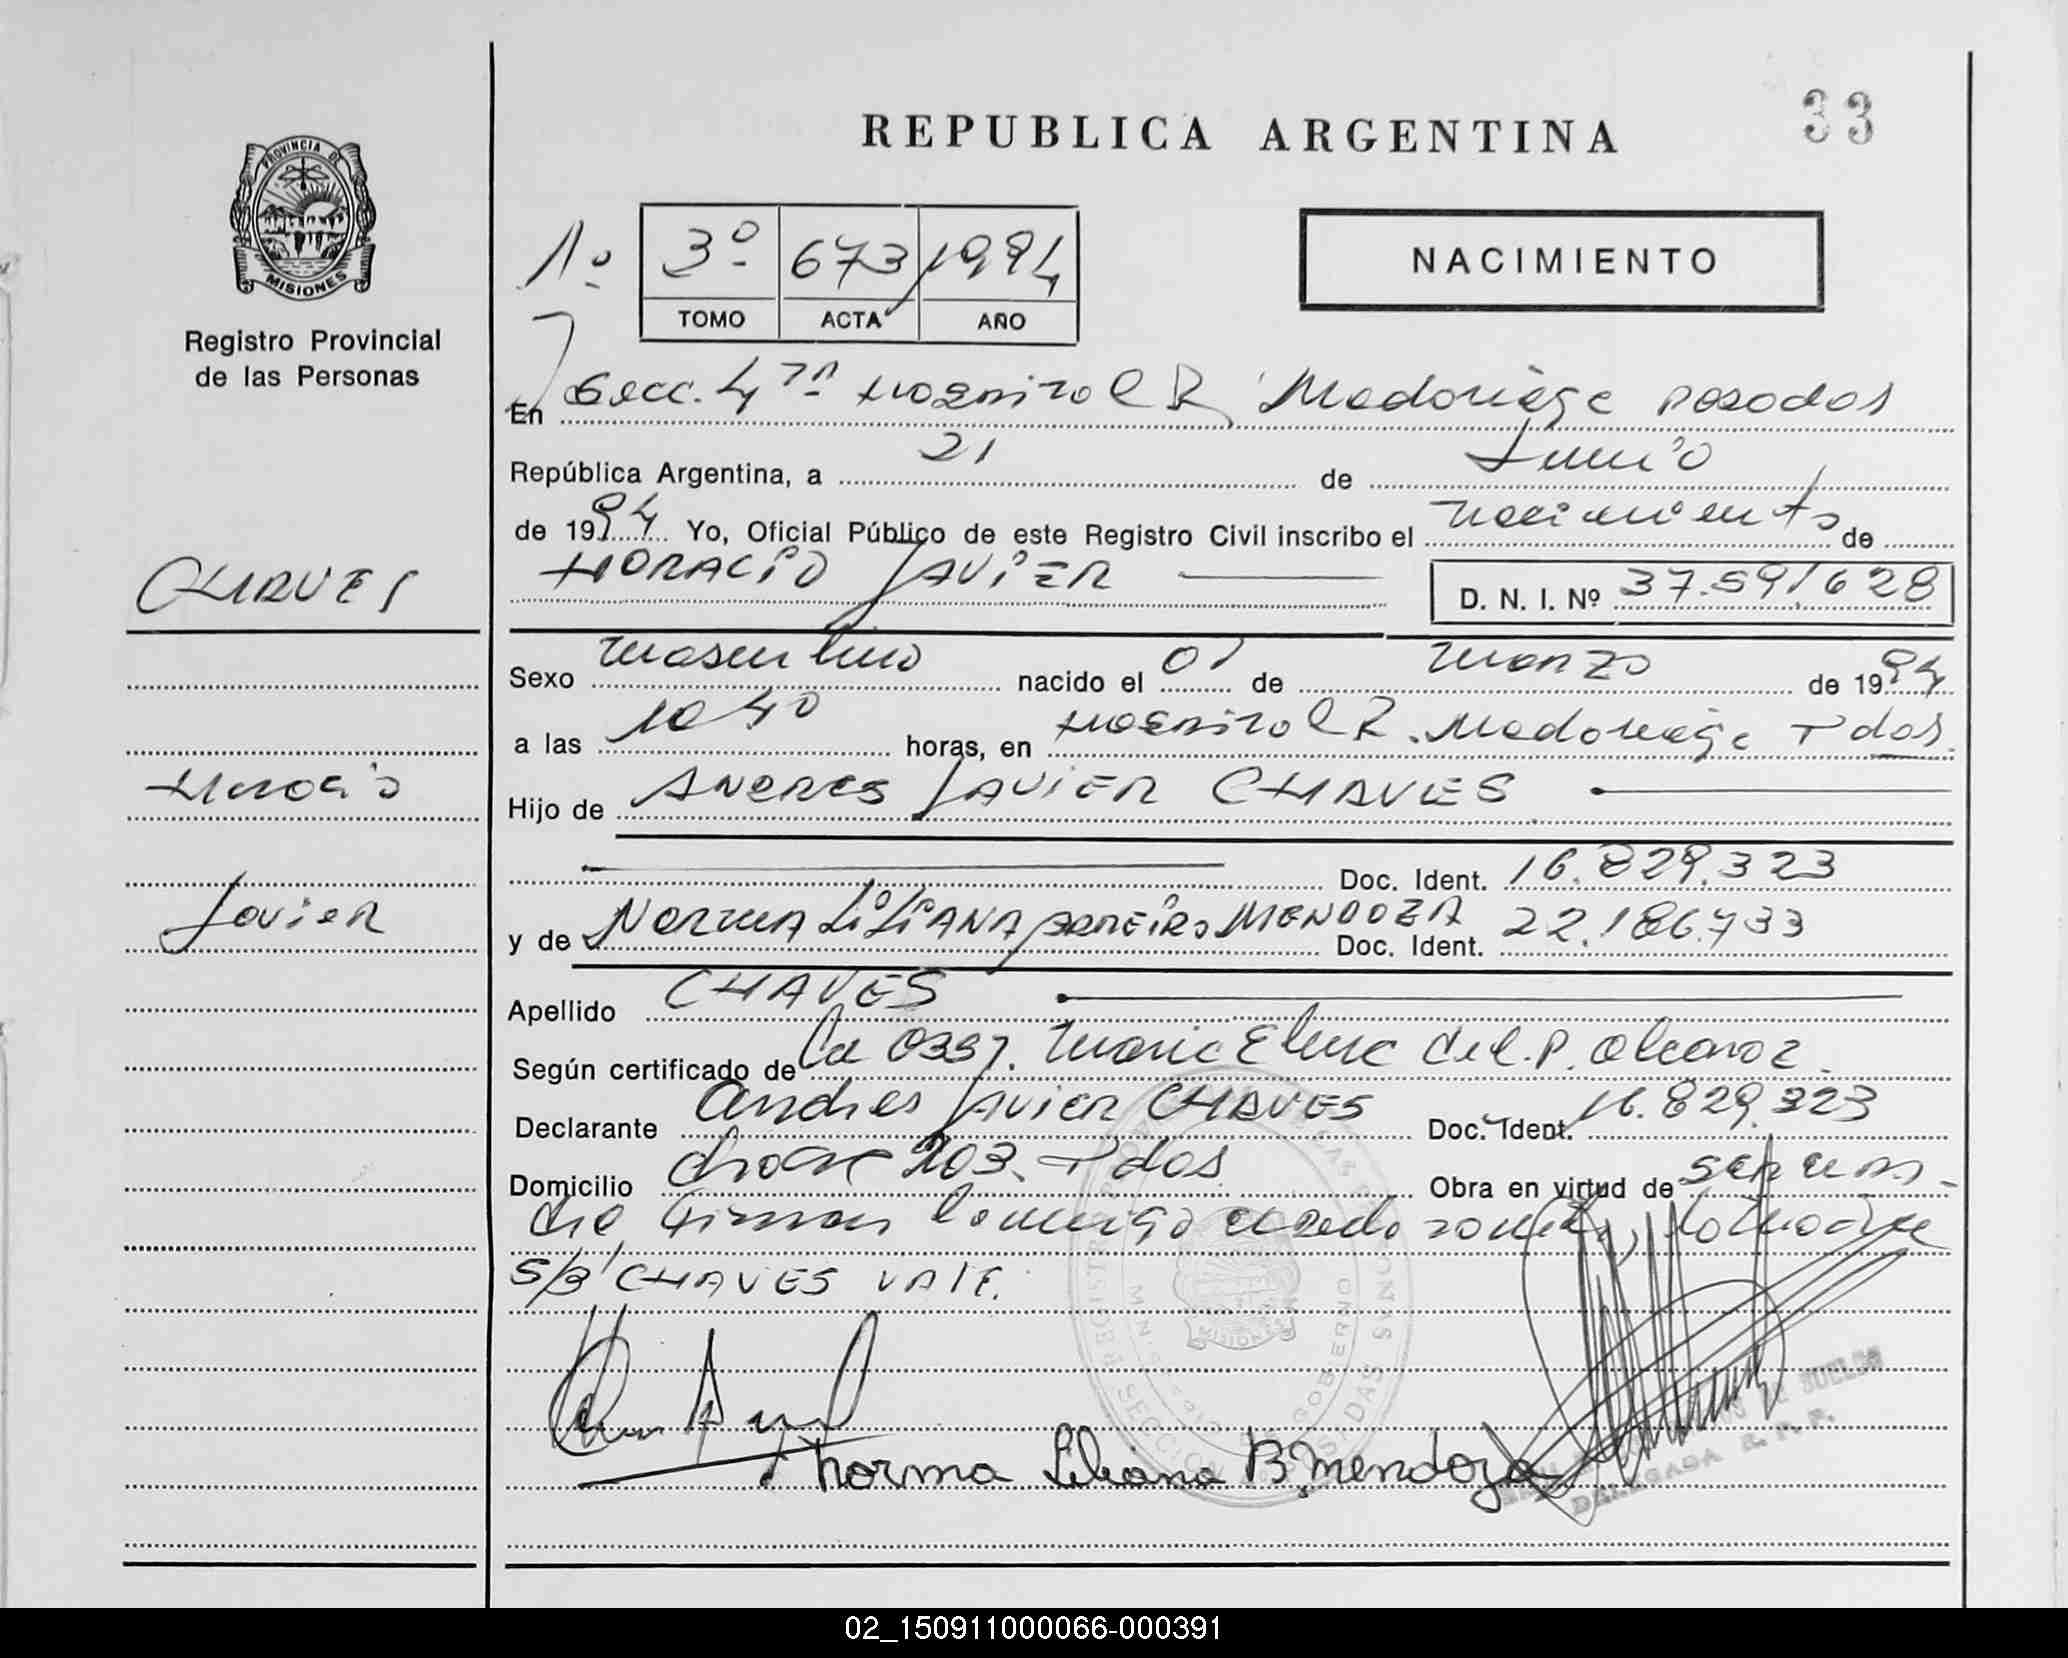 33
REPUBLICA ARGENTINA
PROVINCIA DE
MISIONES
Registro Provincial
de las Personas
NACIMIENTO
1º 3º 673 1994
TOMO ACTA AÑO
En Secc. 4ta Hospital R. Madariaga Posadas
República Argentina, a 21 de Junio
de 1994 Yo, Oficial Público de este Registro Civil inscribo el nacimiento de
CHAVES
HORACIO JAVIER
D. N. I. Nº 37.591.628
Sexo masculino nacido el 01 de marzo de 1994
a las 10 40 horas, en Hospital R. Madariaga Pdas.
Horacio
Hijo de ANDRES JAVIER CHAVES
Doc. Ident. 16.829.323
Javier
y de NORMA LILIANA MENDOZA Doc. Ident. 22.186.733
Apellido CHAVES
Según certificado de la Obst. Maria Elena del P. Alcaraz
Declarante Andres Javier CHAVES Doc. Ident. 16.829.323
Domicilio 203. Pdas. Obra en virtud de ser su pa-
dre Firman conmigo la madre
S/B CHAVES VALE.
REGISTRO
MISIONES
GOBIERNO
Norma Liliana B. Mendoza
DELEGADA R. P. P.
02_150911000066-000391